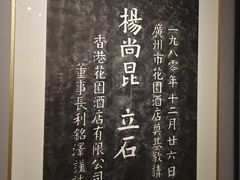 一九八〇年十二月廿六日
廣州市花園酒店奠基敦請
楊尚昆 立石
香港花園酒店有限公司
董事長利銘澤謹